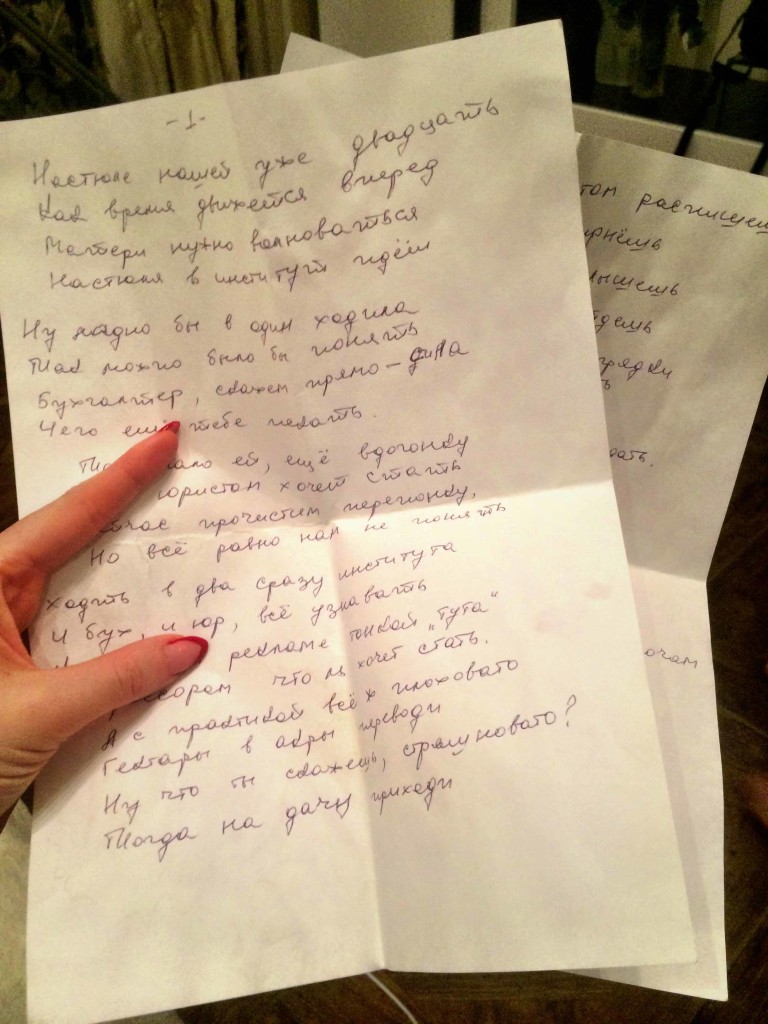 -1-
Настюле нашей уже двадцать
Как время движется вперед
Матери нужно волноваться
Настюля в институт идёт
Ну ладно бы в один ходила
Так можно было бы понять
Бухгалтер, скажем прямо - сила
Чего ещё тебе искать.
мало ей, ещё вдогонку
юристом хочет стать
прочистим перепонку,
Но всё равно нам не понять
Ходить в два сразу института
И бух, и юр, всё узнавать
рекламе тонкой „тута“
что ль хочет стать.
А с практикой всё ж плоховато
Гектары в акры переводи
Ну что ты скажешь, страшновато?
Тогда на дачу приходи
том распишем